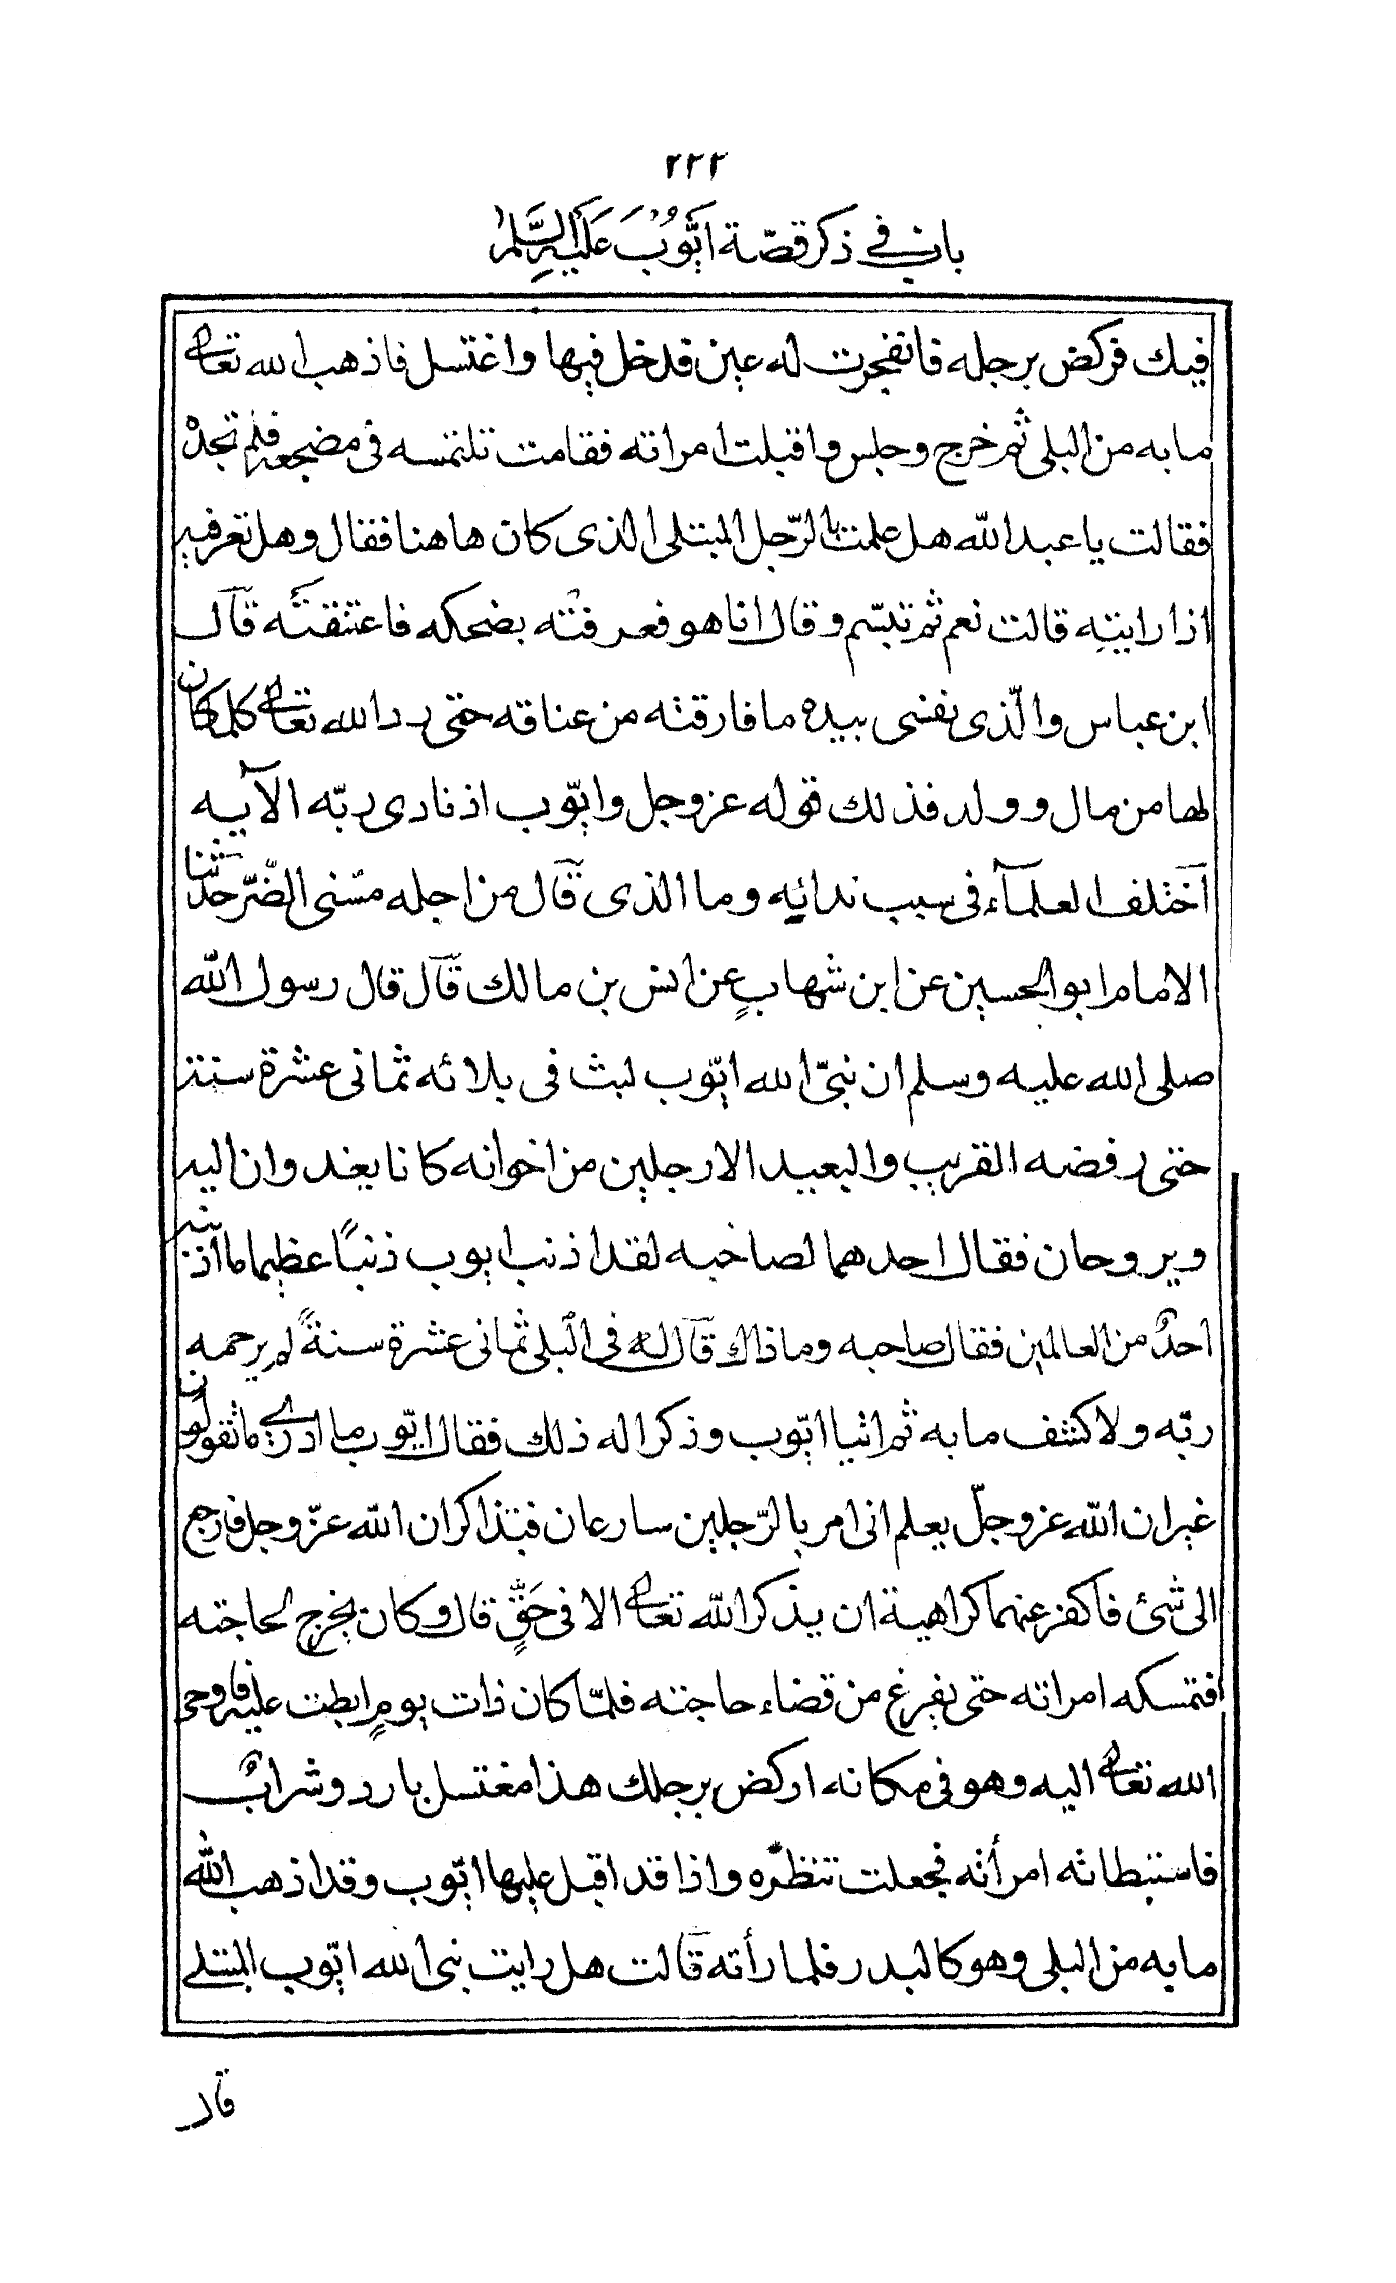 ٢٢٢
باب في ذكر قصّة ايّوبَ عَلَيْهِ السَّلٰم
فيك فركض برجله فانفجرت له عين فدخل فيها واغتسل فاذهب الله تعالى
ما به من البلى ثم خرج وجلس واقبلت امراته فقامت تلتمسه فى مضجعه فلم تجده
فقالت يا عبد الله هل علمت بالرّجل المبتلى الذى كان هاهنا فقال وهل تعرفيه
اذا رايتِه قالت نعم ثم تبسّم وقال انا هو فعرفته بضحكه فاعتنقته قال
ابن عباس والّذى نفسى بيده ما فارقته من عناقه حتى رد الله تعالى كلما كان
لها من مال وولد فذلك قوله عز وجل وايّوب اذ نادى ربّه الآيه
اختلف العلمآء فى سبب ندائه وما الذى قال من اجله مسّنى الضّرّ حدّثنا
الامام ابو الحسين عن ابن شهابٍ عن انس بن مالك قال قال رسول الله
صلى الله عليه وسلم ان نبىّ الله ايّوب لبث فى بلائه ثمانى عشرة سنة
حتى رفضه القريب والبعيد الا رجلين من اخوانه كانا يغدوان اليه
ويروحان فقال احدهما لصاحبه لقد اذنب ايوب ذنبًا عظيما ما اذنبه
احدٌ من العالمين فقال صاحبه وما ذاك قال له فى البلى ثمانى عشرة سنةً لم يرحمه
ربّه ولا كشف ما به ثم اتيا ايّوب وذكرا له ذلك فقال ايّوب ما ادرى ما تقولون
غير ان الله عز وجلّ يعلم انى امر بالرّجلين سارعان فيتذاكران الله عزّ وجل فارجع
الى شئ فاكفر عنهما كراهية ان يذكر الله تعالى الا فى حَقٍّ قال وكان يخرج لحاجته
فتمسكه امراته حتى يفرغ من قضاء حاجته فلمّا كان ذات يومٍ ابطت عليه فاوحى
الله تعالى اليه وهو فى مكانه اركض برجلك هذا مغتسل بارد وشرابٌ
فاستبطاته امرأته فجعلت تنظره واذا قد اقبل عليها ايّوب وقد اذهب الله
ما به من البلى وهو كالبدر فلما رأته قالت هل رايت نبى الله ايّوب المبتلى
قال